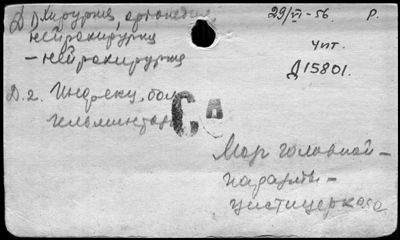 Д Хирургия, ортопедия,
нейрохирургия
– нейрохирургия
29/VI-56 Р.
Чит.
Д15801.
Д.2. Индекц. бол.
СО
Мозг головной –
паразиты –
цистицеркоз